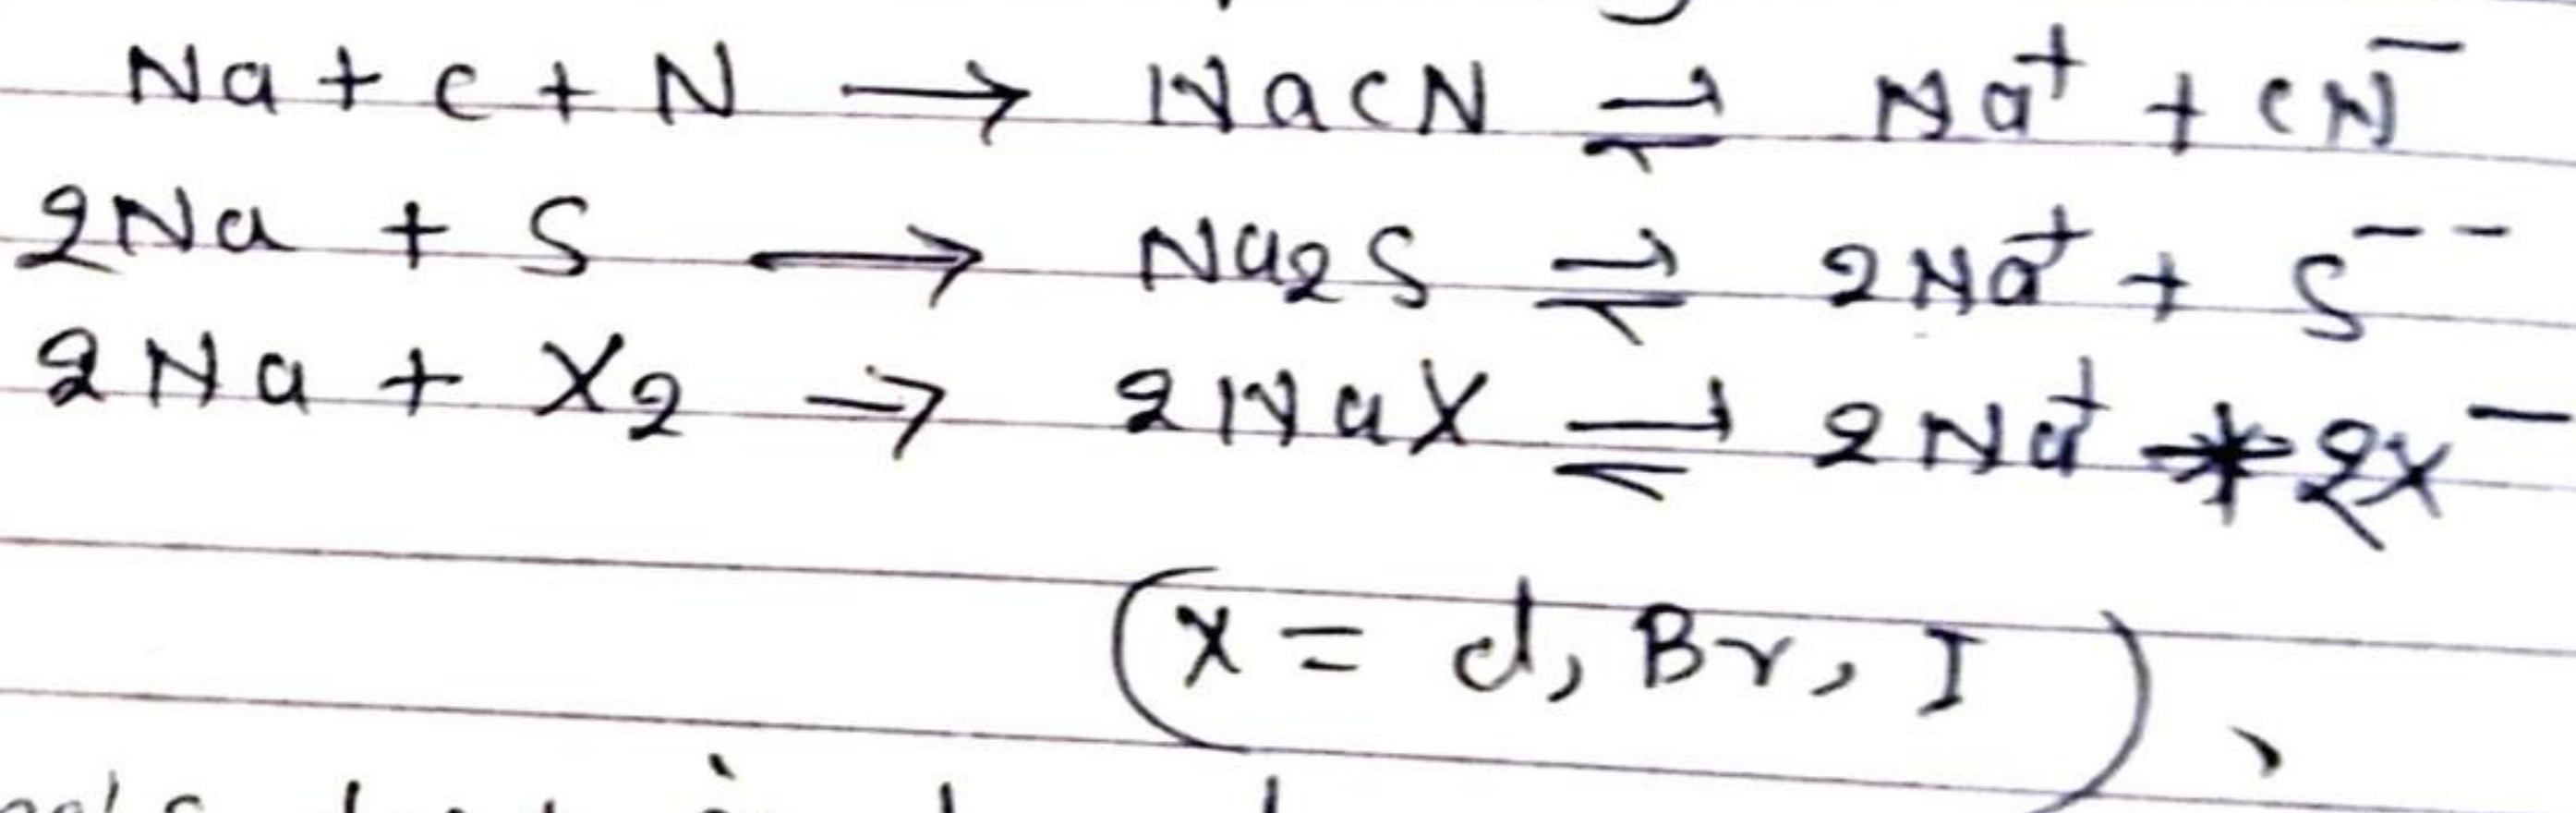 Na + C + N → NaCN ⇌ Na⁺ + CN⁻
2Na + S → Na₂S ⇌ 2Na⁺ + S⁻⁻
2Na + X₂ → 2NaX ⇌ 2Na⁺ + 2X⁻
(X = Cl, Br, I)